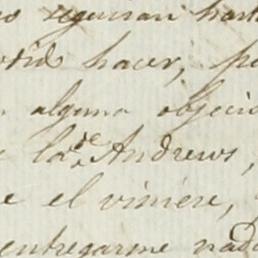 seguian hast
hacer, p
alguna objeció
la de Andrews,
e el viniere,
entregarme nad